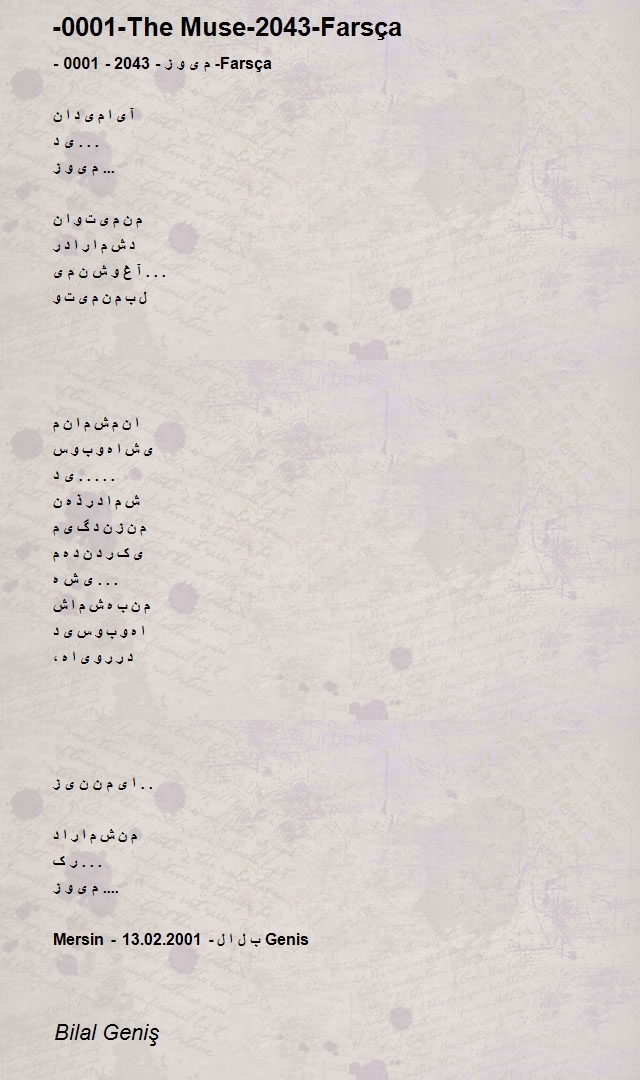 -0001-The Muse-2043-Farsça
- 0001 - 2043 - م ی و ز -Farsça
آ ی ا م ی د ا ن
. . . ی د
... م ی و ز
م ن م ی ت و ا ن
د ش م ا ر ا د ر
. . . آ غ و ش ن م ی
ل ب م ن م ی ت و
ا ن م ش م ا ن م
ی ش ا ه و ب و س
. . . . . ی د
ش م ا د ر ذ ه ن
م ن ز ن د گ ی م
ی ک ر د ن د ه م
. . . ی ش ه
م ن ب ه ش م ا ش
ا ه و ب و س ی د
د ر ر و ی ا ه ،
. . ا ی م ن ن ی ز
م ن ش م ا ر ا د
. . . ر ک
.... م ی و ز
Mersin - 13.02.2001 - ب ل ا ل Genis
Bilal Geniş